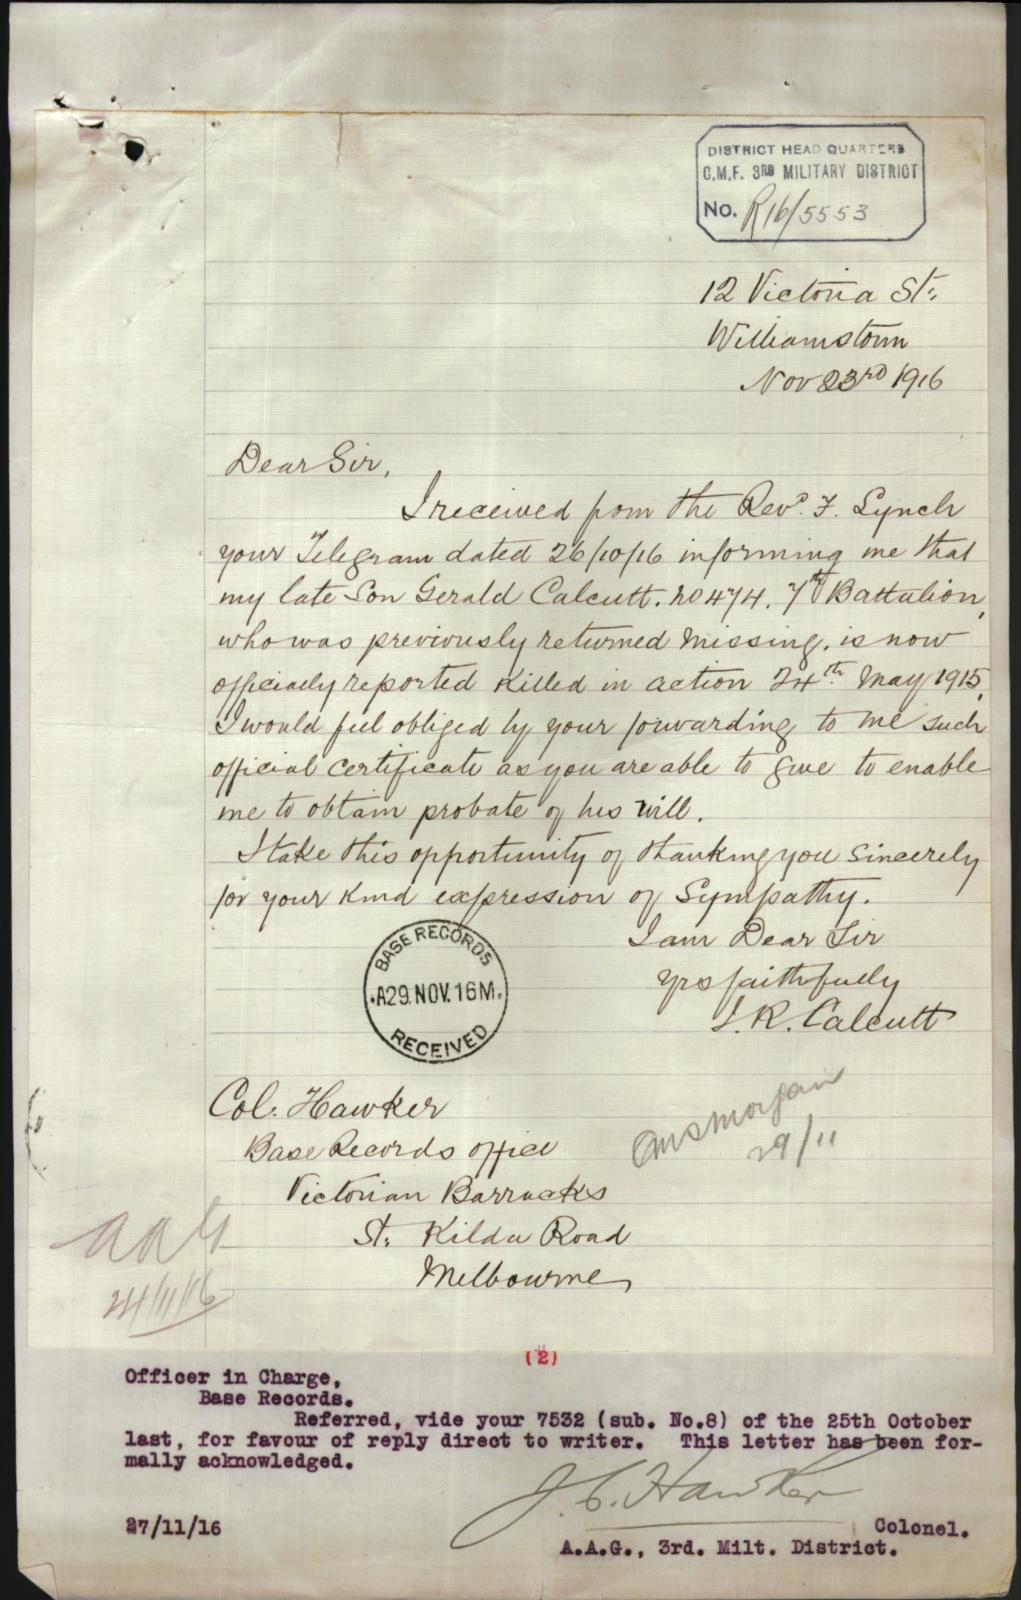 DISTRICT HEAD QUARTERS
C.M.F. 3RD MILITARY DISTRICT
No. R16/5553
12 Victoria St.
Williamstown
Nov 23rd 1916
Dear Sir,
I received from the Revd. F. Lynch
your Telegram dated 26/10/16 informing me that
my late Son Gerald Calcutt. No 474. 7th Battalion,
who was previously returned missing, is now
officially reported killed in action 24th May 1915.
I would feel obliged by your forwarding to me such
official certificate as you are able to give to enable
me to obtain probate of his will.
I take this opportunity of thanking you sincerely
for your kind expression of Sympathy.
I am Dear Sir
Yrs faithfully
J. R. Calcutt
BASE RECORDS
A29.NOV.16M.
RECEIVED
Col. Hawker
Base Records office
Victorian Barracks
St. Kilda Road
Melbourne
29/11
AAG
24/11/16
(2)
Officer in Charge,
Base Records.
Referred, vide your 7532 (sub. No.8) of the 25th October
last, for favour of reply direct to writer. This letter has been for-
mally acknowledged.
J. C. Hawker
27/11/16
Colonel.
A.A.G., 3rd. Milt. District.